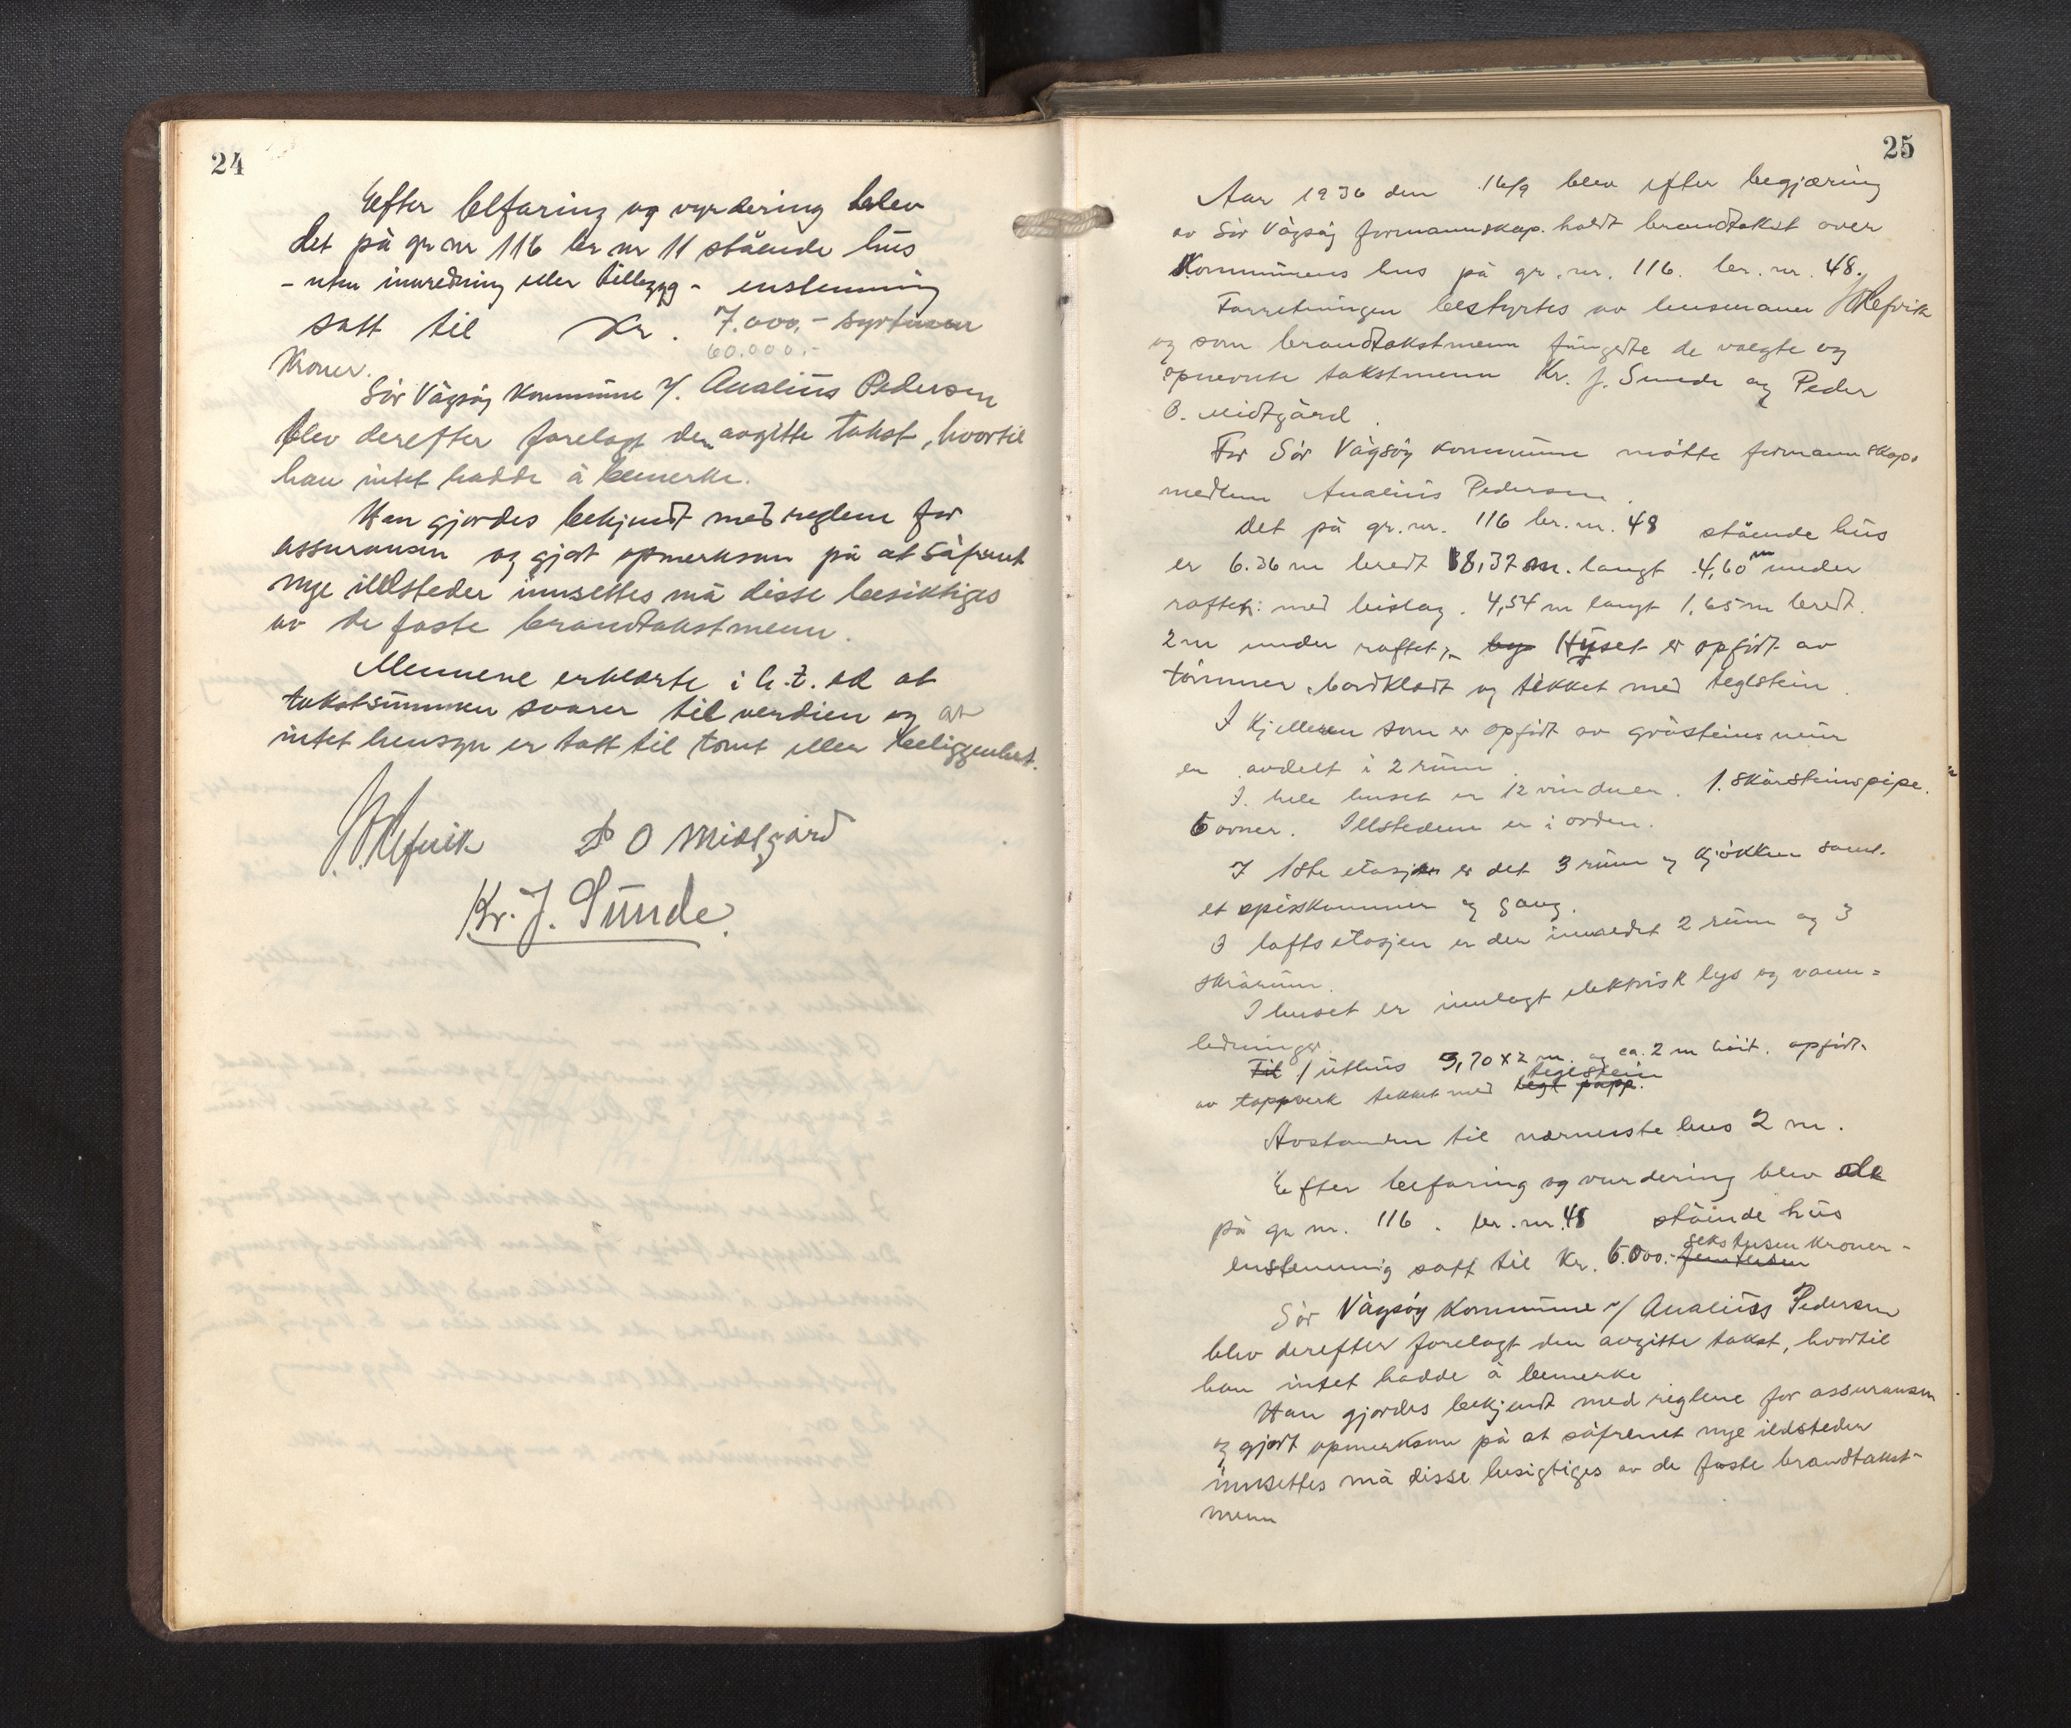 24
Efter befaring og vyrdering blev
det på gr nr 116 br nr 11 stående hus
- uten innredning eller tillegg - enstemmig
satt til Kr. 7.000,- syvtusen
60.000.-
Kroner.
Sör Vågsöy Kommune v/ Analius Pedersen
blev derefter forelagt den avgitte takst, hvortil
han intet hadde å bemerke.
Han gjordes bekjendt med reglene for
assuransen og gjort opmerksom på at såfremt
nye ildsteder innsettes må disse besiktiges
av de faste brandtakstmenn.
Mennene erklærte i h.t. ed at
takstsummen svarer til verdien og at
intet hensyn er tatt til tomt eller beliggenhet.
Refvik P O Midtgård
Kr. J. Sunde.
25
Aar 1936 den 16/9 blev efter begjæring
av Sör Vågsöy formannskap holdt brandtakst over
Kommunens hus på gr. nr. 116. br. nr. 48.
Forretningen bestyrtes av lensmann Refvik
og som brandtakstmenn fungerte de valgte og
opnevnte takstmenn Kr. J. Sunde og Peder
O. Midtgård.
For Sör Vågsöy Kommune mötte formannskaps
medlem Analius Pedersen.
Det på gr. nr. 116 br. nr. 48 stående hus
er 6.36 m bredt 8,37 m. langt 4,60 m under
raftet: med bislag. 4,54 m langt 1,65 m bredt.
2 m under raftet,- Huset er opfört av
tömmer, bordklædt og tekket med teglstein.
I Kjelleren som er opfört av gråsteins mur
er avdelt i 2 rum.
I hele huset er 12 vinduer. 1. skorsteinspipe.
6 ovner. Illstedene er i orden.
I 1ste etasjen er det 3 rum og kjökken samt.
et spisskammer og gang.
I loftsetasjen er der innredet 2 rum og 3
skrårum.
I huset er innlagt elektrisk lys og vann=
ledninger.
Til 1 uthus 3,70 x 2 m. og ca. 2 m höit. opfört.
teglstein
av toppverk tekket med tegl papp.
Avstanden til nærmeste hus 2 m.
Efter befaring og vurdering blev de
på gr nr. 116. br. nr. 48 stående hus
sekstusen kroner -
enstemmig satt til Kr. 6.000.- femtusen
Sör Vågsöy Kommune v/ Analius Pedersen
blev derefter forelagt den avgitte takst, hvortil
han intet hadde å bemerke
Han gjordes bekjendt med reglene for assuransen
og gjort opmerksom på at såfremt nye ildsteder
innsettes må disse besigtiges av de faste brandtakst-
menn